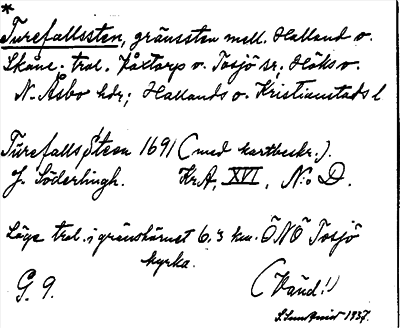 *
Turefallssten, gränssten mell. Halland o.
Skåne. trol. Våxtorp o. Tosjö sr, Höks o.
N. Åsbo hdr; Hallands o. Kristianstads l
Turefalls Steen 1691 (med kartbeskr.).
J. Söderlingh. Kr.A, XVI, N:o D.
Läge trol. i gränshörnet 6,3 km. ÖNÖ Tosjö
kyrka.
G. 9. (Vänd!)
1937.